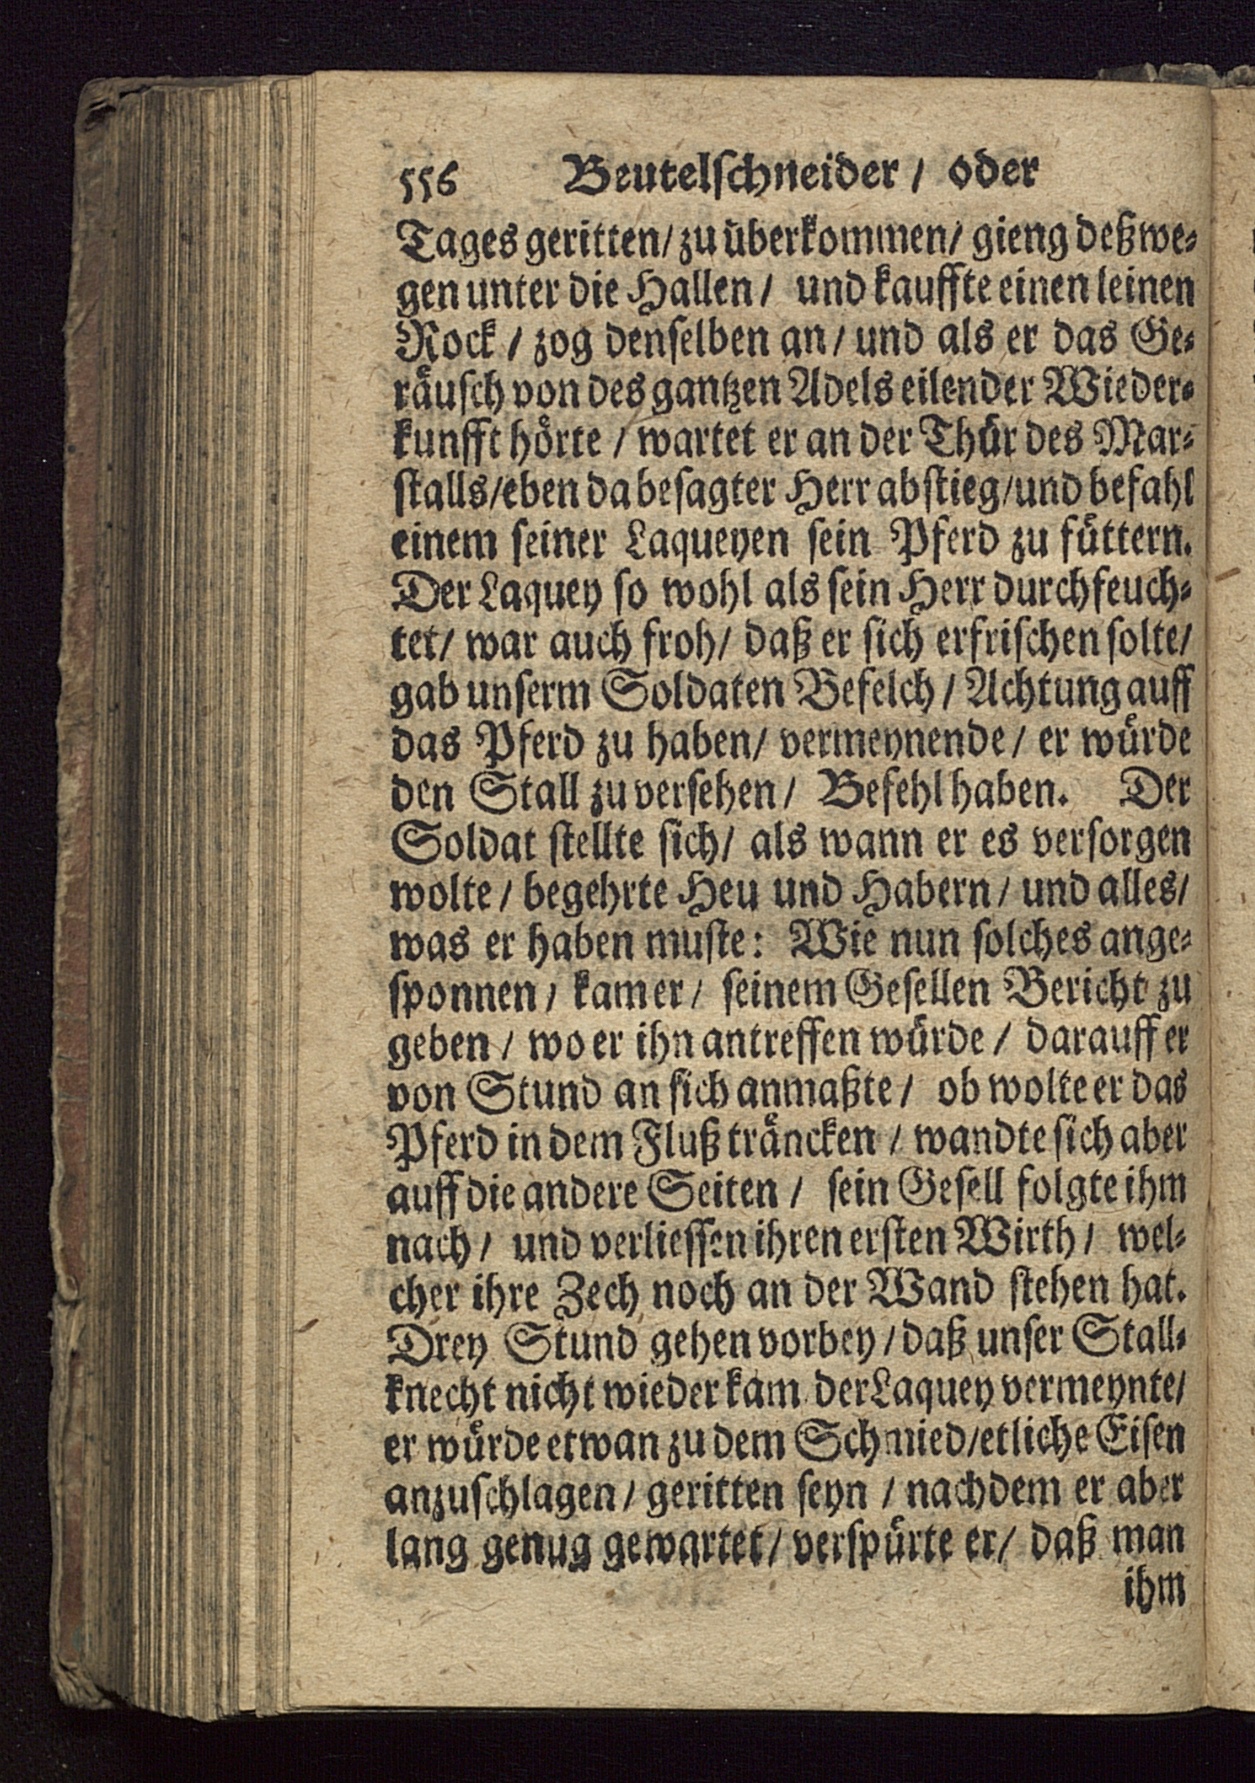 556 Beutelschneider / oder
Tages geritten / zu überkommen / gieng deßwe-
gen unter die Hallen / und kauffte einen leinen
Rock / zog denselben an / und als er das Ge-
räusch von des gantzen Adels eilender Wieder-
kunfft hörte / wartet er an der Thür des Mar-
stalls / eben da besagter Herr abstieg / und befahl
einem seiner Laqueyen sein Pferd zu füttern.
Der Laquey so wohl als sein Herr durchfeuch-
tet / war auch froh / daß er sich erfrischen solte /
gab unserm Soldaten Befelch / Achtung auff
das Pferd zu haben / vermeynende / er würde
den Stall zu versehen / Befehl haben. Der
Soldat stellte sich / als wann er es versorgen
wolte / begehrte Heu und Habern / und alles /
was er haben muste: Wie nun solches ange-
sponnen / kam er / seinem Gesellen Bericht zu
geben / wo er ihn antreffen würde / darauff er
von Stund an sich anmaßte / ob wolte er das
Pferd in dem Fluß träncken / wandte sich aber
auff die andere Seiten / sein Gesell folgte ihm
nach / und verliessen ihren ersten Wirth / wel-
cher ihre Zech noch an der Wand stehen hat.
Drey Stund gehen vorbey / daß unser Stall-
knecht nicht wieder kam der Laquey vermeynte /
er würde etwan zu dem Schmied / etliche Eisen
anzuschlagen / geritten seyn / nachdem er aber
lang genug gewartet / verspürte er / daß man
ihm